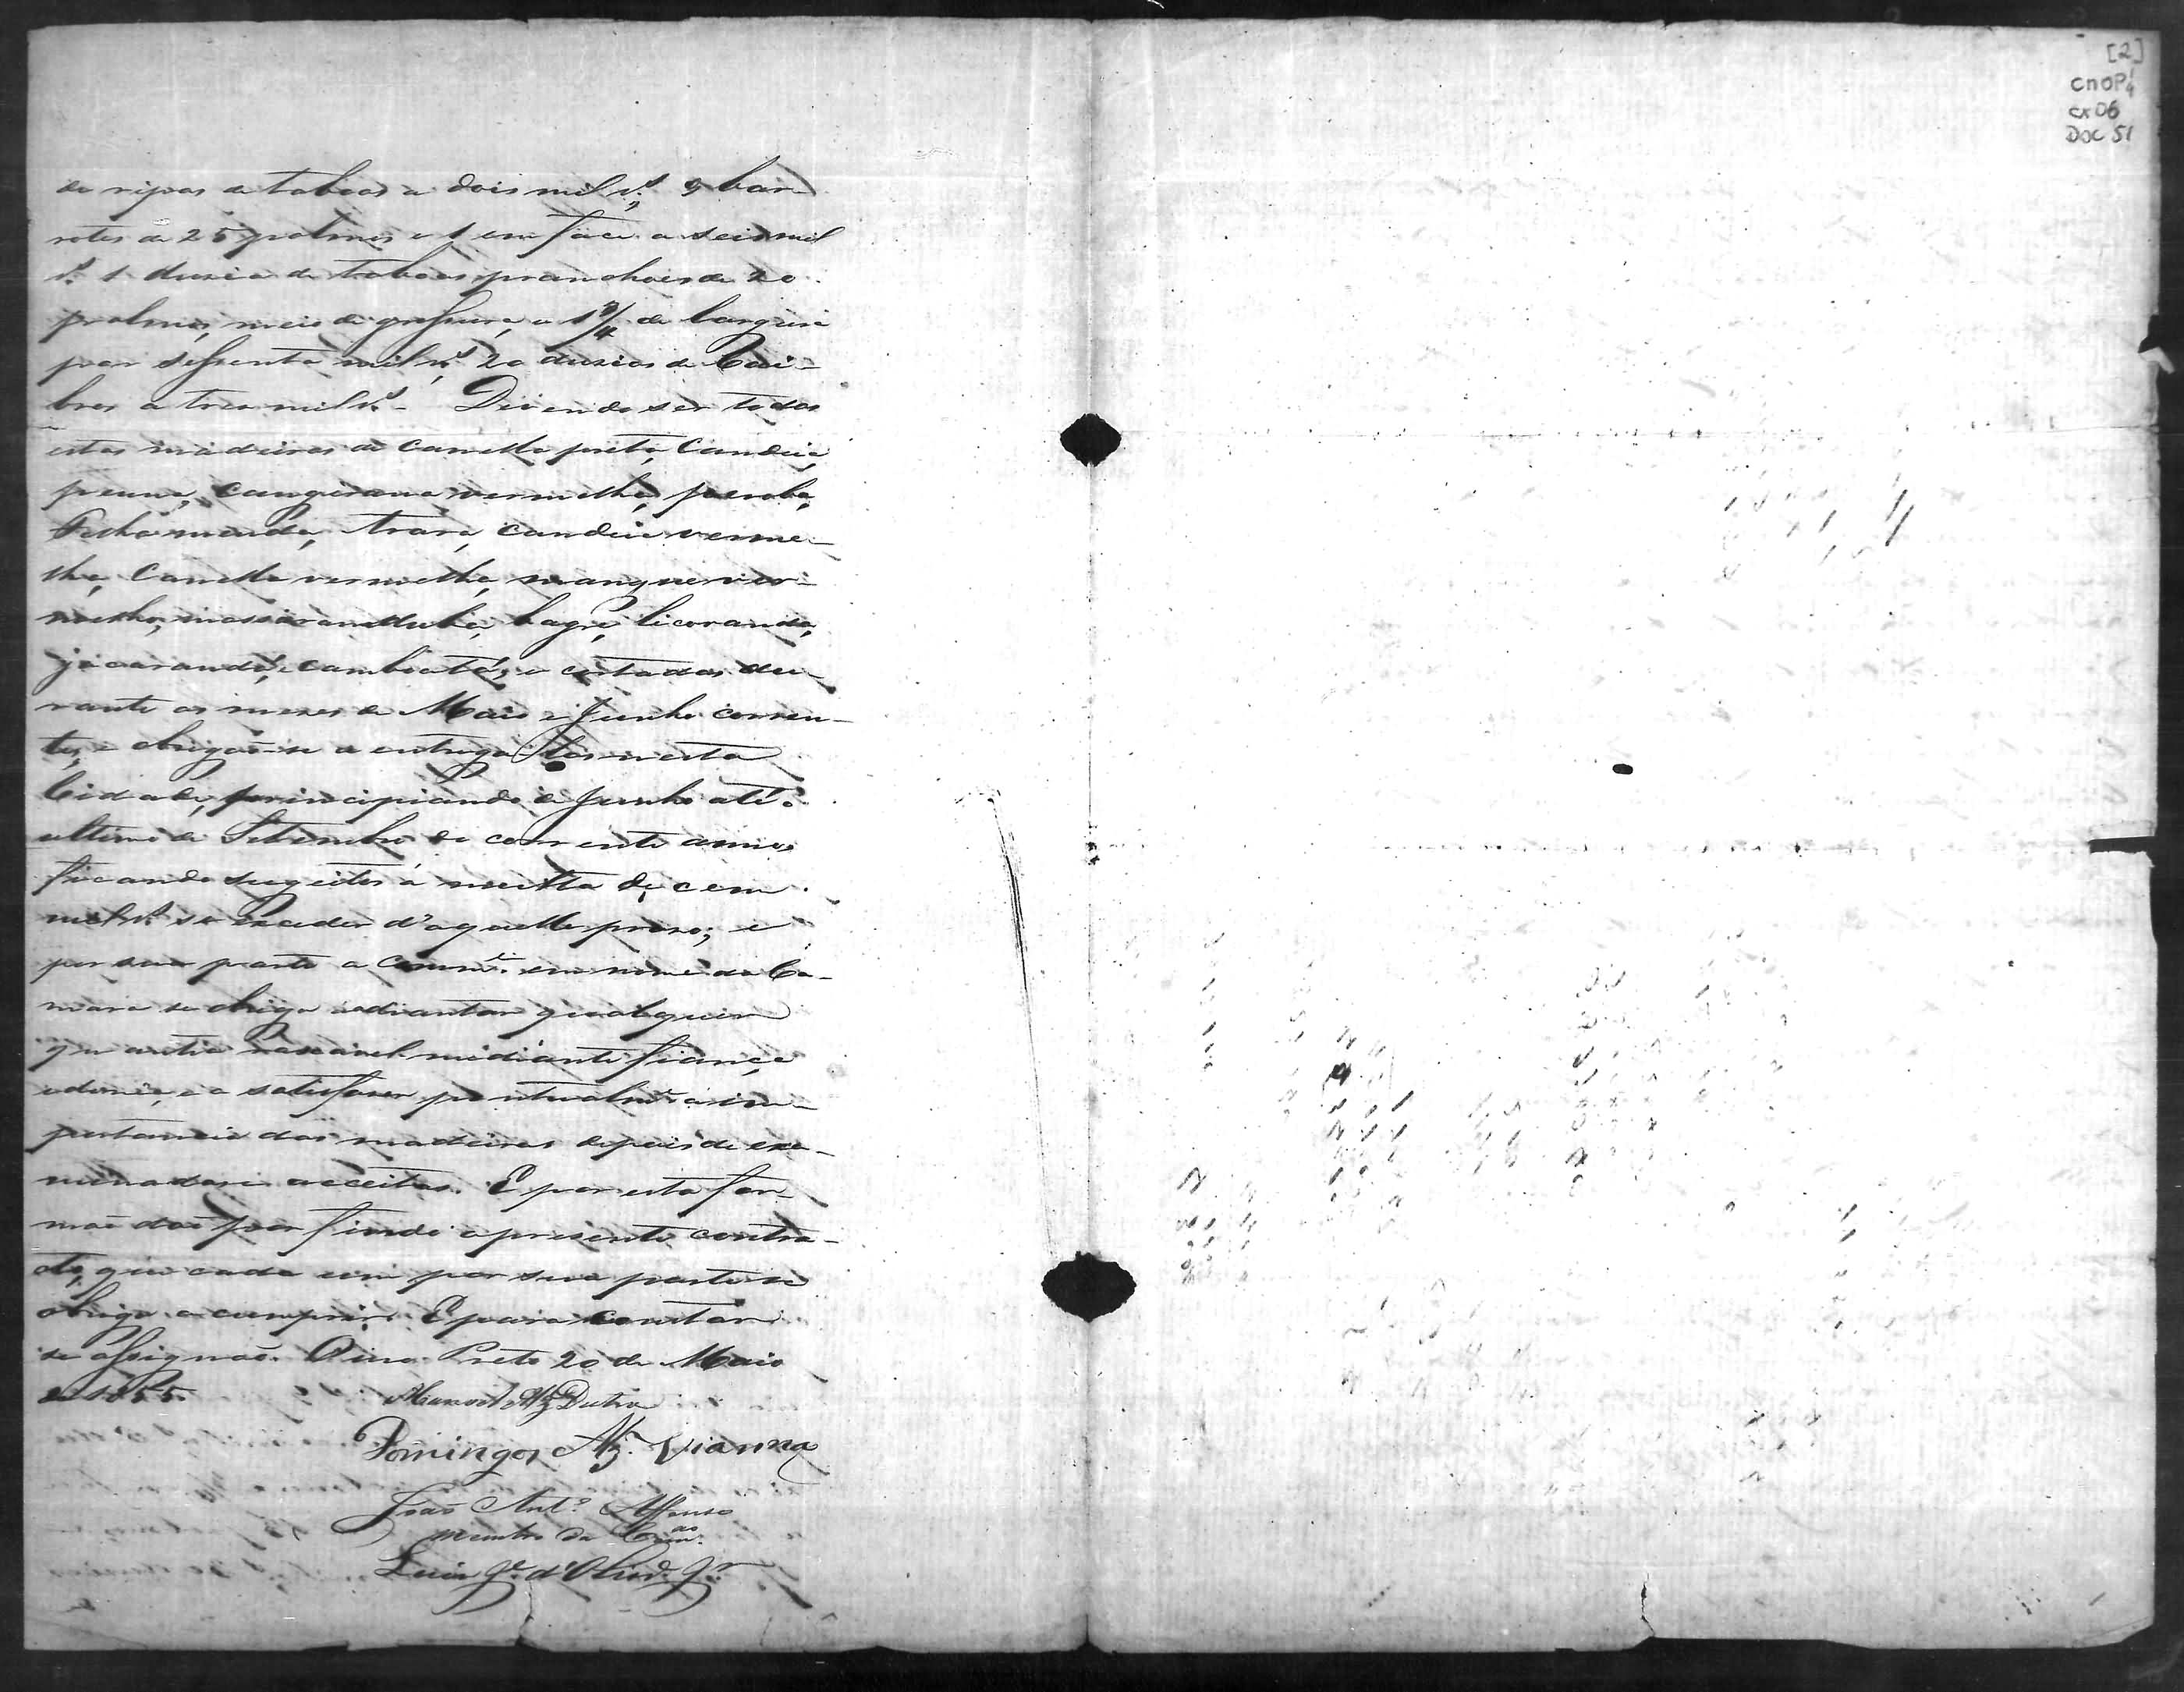 de ripas de taboas a dois mil rs, 9 bar-
rotes de 25 palmos e 1 em face a seis mil
rs. 1 duzia de taboas pranchões de 20
palmos, meio de grossura, e 1 3/4 de largura
por sessenta mil rs, 20 duzias de Cai-
bros a tres mil rs. - Devendo ser todas
estas madeiras de Canella preta, Candeia,
Cangerana vermelha, peroba,
Folha miuda, Arara, Candeia verme-
lha, Canella vermelha, mangue ver-
melho, massaranduba, bagre, licoranda,
jacarandá, camboatá, e cortadas du-
rante os mezes de Maio e Junho corren-
tes, e obrigão-se a entrega-las nesta
Cidade, principiando de Junho até o
ultimo de Setembro do corrente anno,
ficando sugeitos á multa de cem
mil rs. se exceder d'aquelle praso; e
por sua parte a Commam. em nome da Ca-
mara se obriga a adiantar qualquer
quantia rasoavel mediante fiança
idonia, e a satisfazer pontualmte a im-
portancia das madeiras depois de exa-
minadas e acceitas. E por esta for-
ma dão por findo o presente contra-
cto, que cada um por sua parte se
obriga a cumprir. E para constar
se assignão. Ouro Preto 20 de Maio
de 1855.
Manoel Alz Dutra
Domingos Alz. Vianna
João Anto. Affonso
membro da Comam.
Luis Je. d'Olivra. Jr
[2]
CMOP
cx 06
DOC 51